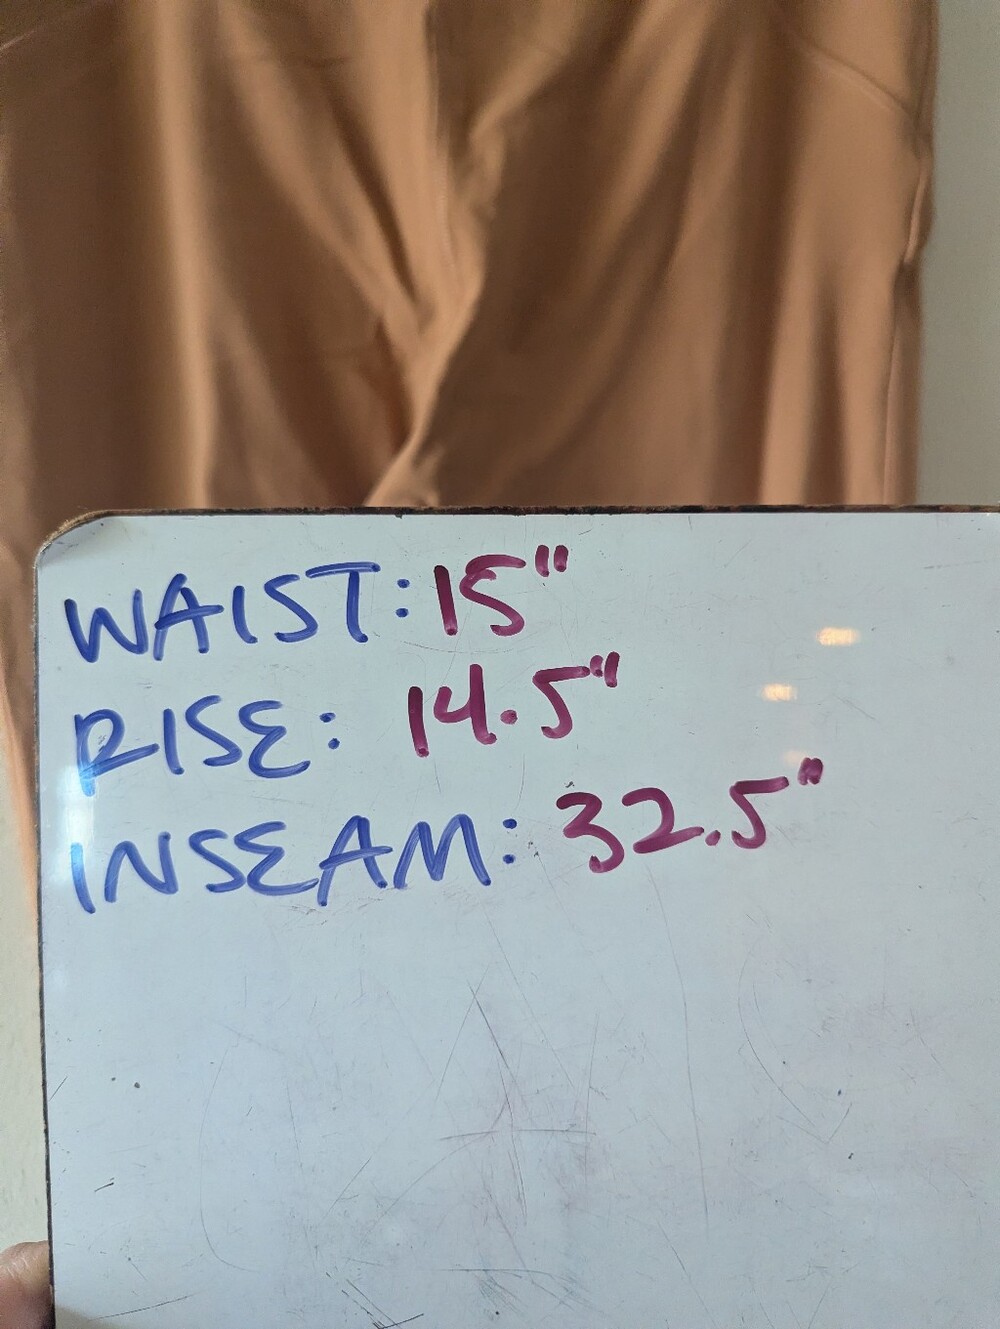 WAIST: 15"
RISE: 14.5"
INSEAM: 32.5"